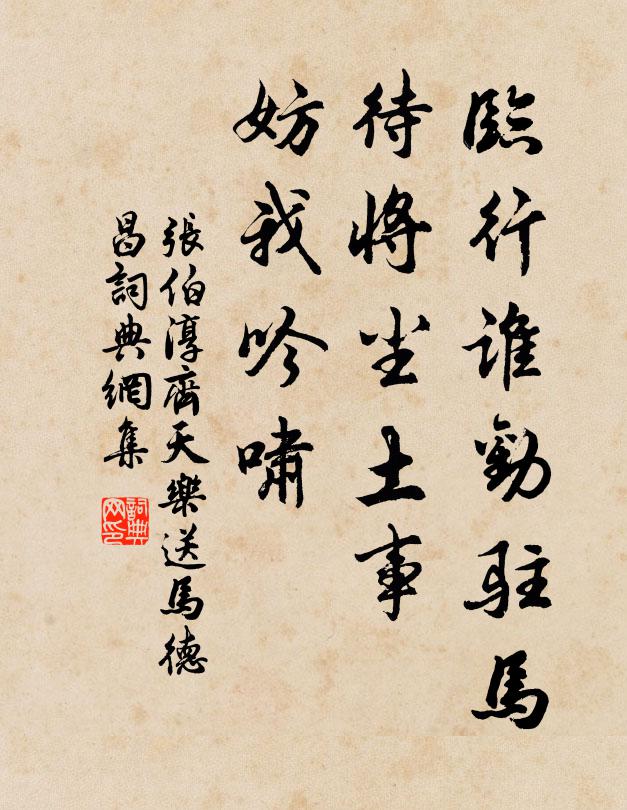 臨行誰勸駐馬
待將尘土事
妨我吟嘯
張伯淳齊天樂送馬德
昌詞典網集
詞典
网印